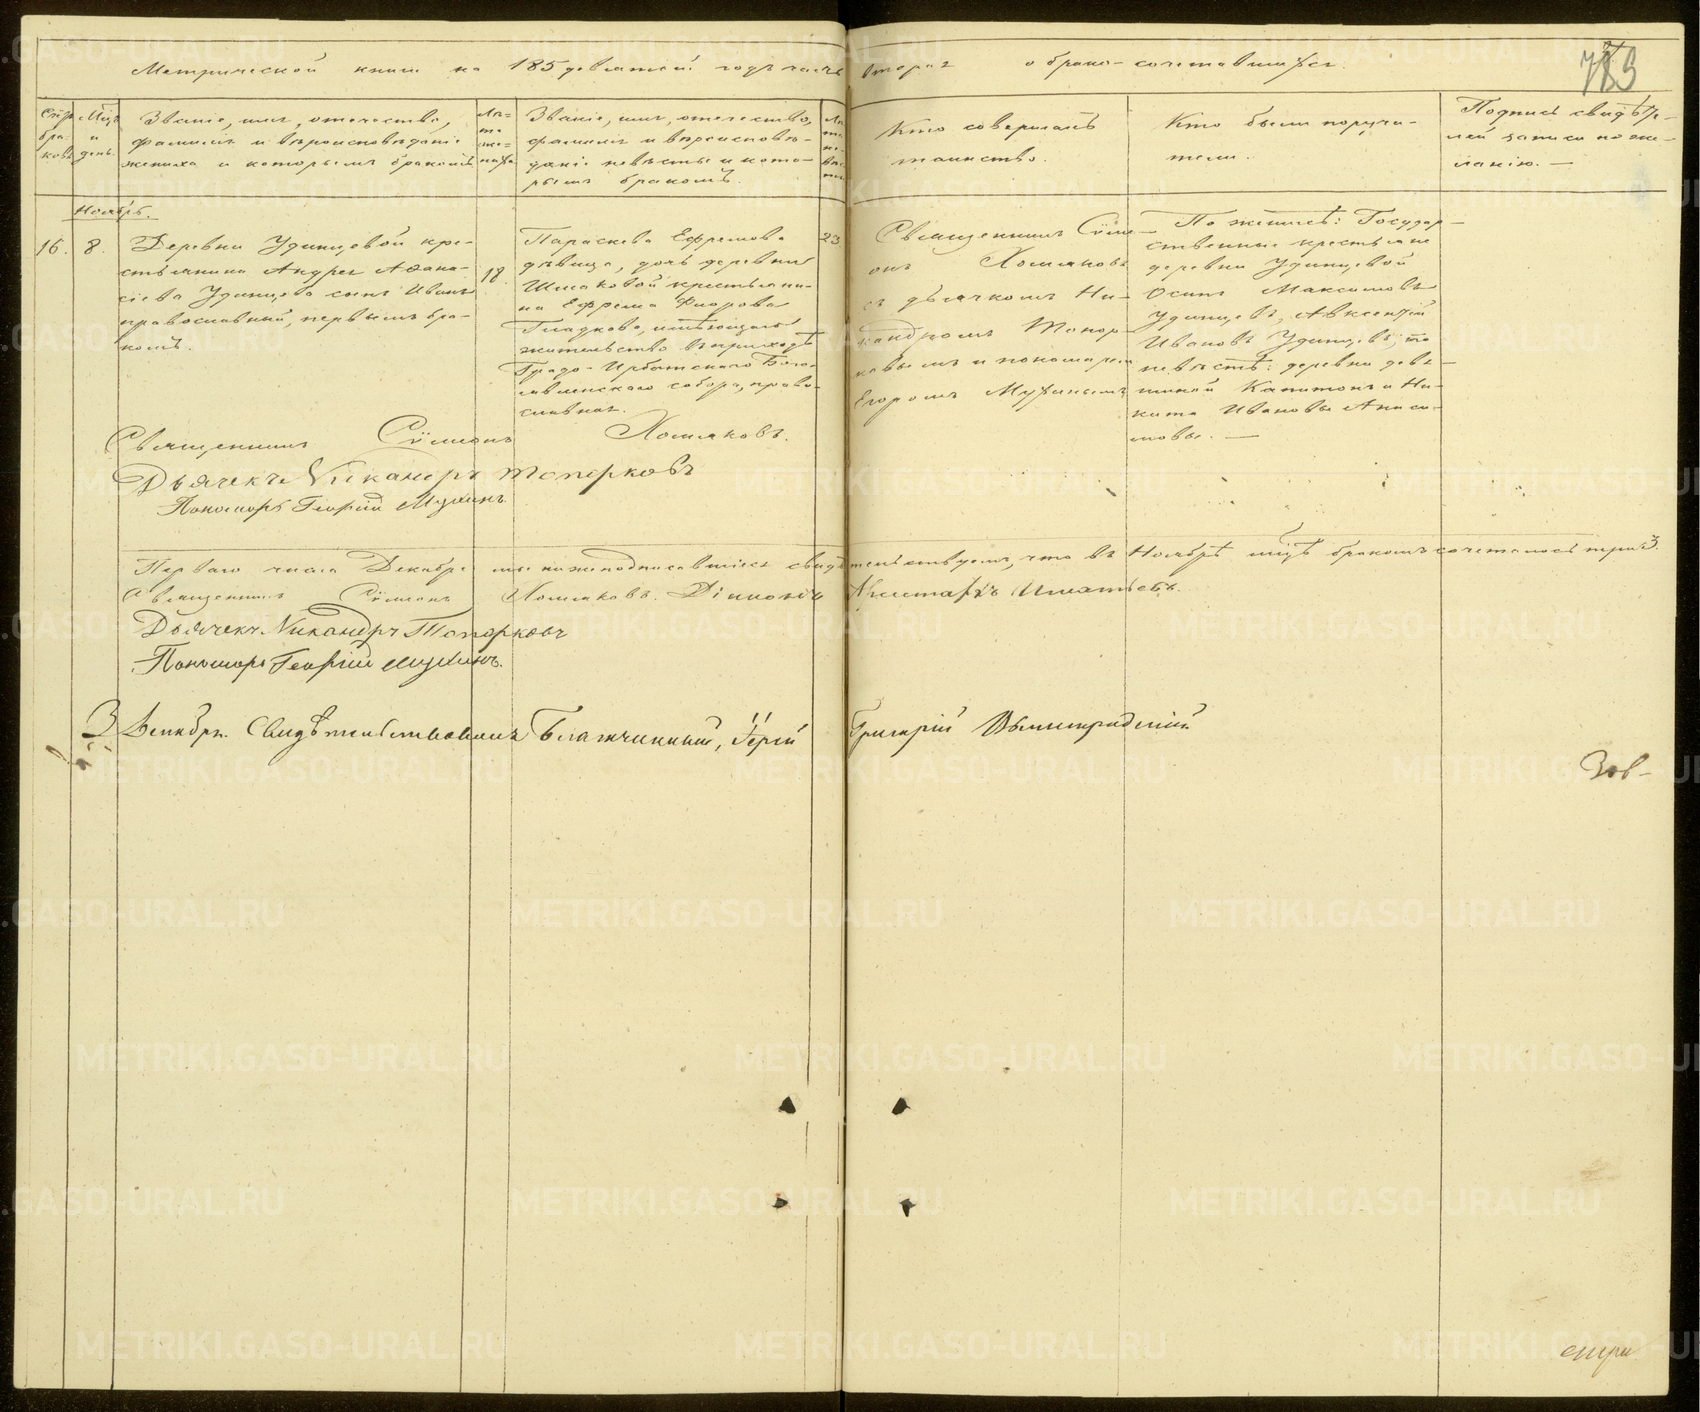 Метрической книги на 1859 девятой годъ часть вторая о брако-сочетавшихся.
Счетъ браковъ
Мѣцъ и день.
Званіе, имя, отечество,
фамилія и вѣроисповѣданіе
жениха и которымъ бракомъ
Лѣта жениха
Званіе, имя, отечество,
фамилія и вѣроисповѣ-
даніе невѣсты и кото-
рымъ бракомъ.
Лѣта невѣсты
Кто совершалъ
таинство.
Кто были поручи-
тели.
Подпись свидѣте-
лей записи по же-
ланію. —
Ноябрь.
16.
8.
Деревни Удинцевой кре-
стьянина Андрея Аѳана-
сіева Удинцева сынъ Иванъ
православный, первымъ бра-
комъ.
18.
Параскева Ефремова
дѣвица, дочь деревни
Шмаковой крестьяни-
на Ефрема
Гладкова, имѣющаго
жительство въ приходѣ
Градо-Ирбитскаго Бого-
явленскаго собора, право-
славная.
23
Священникъ Сѵме-
онъ Хомяковъ
съ дьячкомъ Ни-
кандромъ Топор-
ковымъ и пономаремъ
Егоромъ Мухинымъ
По женихѣ: Государ-
ственные крестьяне
деревни Удинцевой
Осипъ Максимовъ
Удинцевъ, Авксентій
Ивановъ Удинцевъ; по
невѣстѣ: деревни Девя-
шиной Капитонъ и Ни-
кита Ивановы Аниси-
мовы. —
Священникъ Сѵмеонъ Хомяковъ.
Дьячекъ Никандръ Топорковъ
Пономарь Георгій Мухинъ
Перваго числа Декабря мы нижеподписавшіеся свидѣтельствуемъ, что въ Ноябрѣ мцѣ бракомъ сочеталось
Священникъ Сѵмеонъ Хомяковъ. Діаконъ Аристархъ Игнатьевъ.
Дьячекъ Никандръ Топорковъ
Пономарь Георгій Мухинъ.
3 Декабря. Свидѣтельствовалъ Благочинный, Іерей Григорій